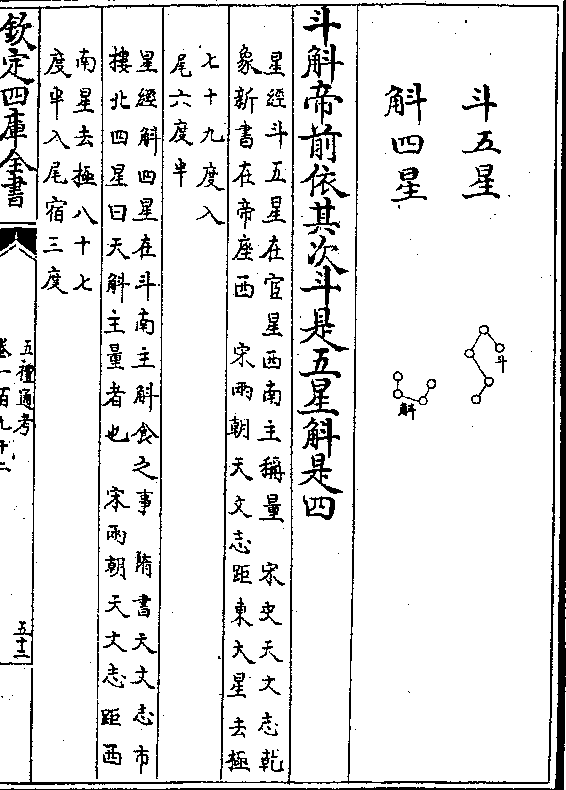 斗五星
斗
斛四星
斛
斗斛帝前依其次斗是五星斛是四
星經斗五星在宦星西南主稱量　宋史天文志乾
象新書在帝座西　宋兩朝天文志距東大星去極
七十九度入
尾六度半
星經斛四星在斗南主斛食之事　隋書天文志市
樓北四星曰天斛主量者也　宋兩朝天文志距西
南星去極八十七
度半入尾宿三度
欽定四庫全書
五禮通考
卷一百九十二
五十二